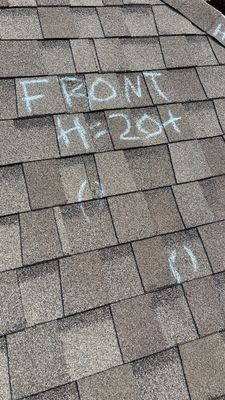 F FRONT
H=20+
( )
( )
H